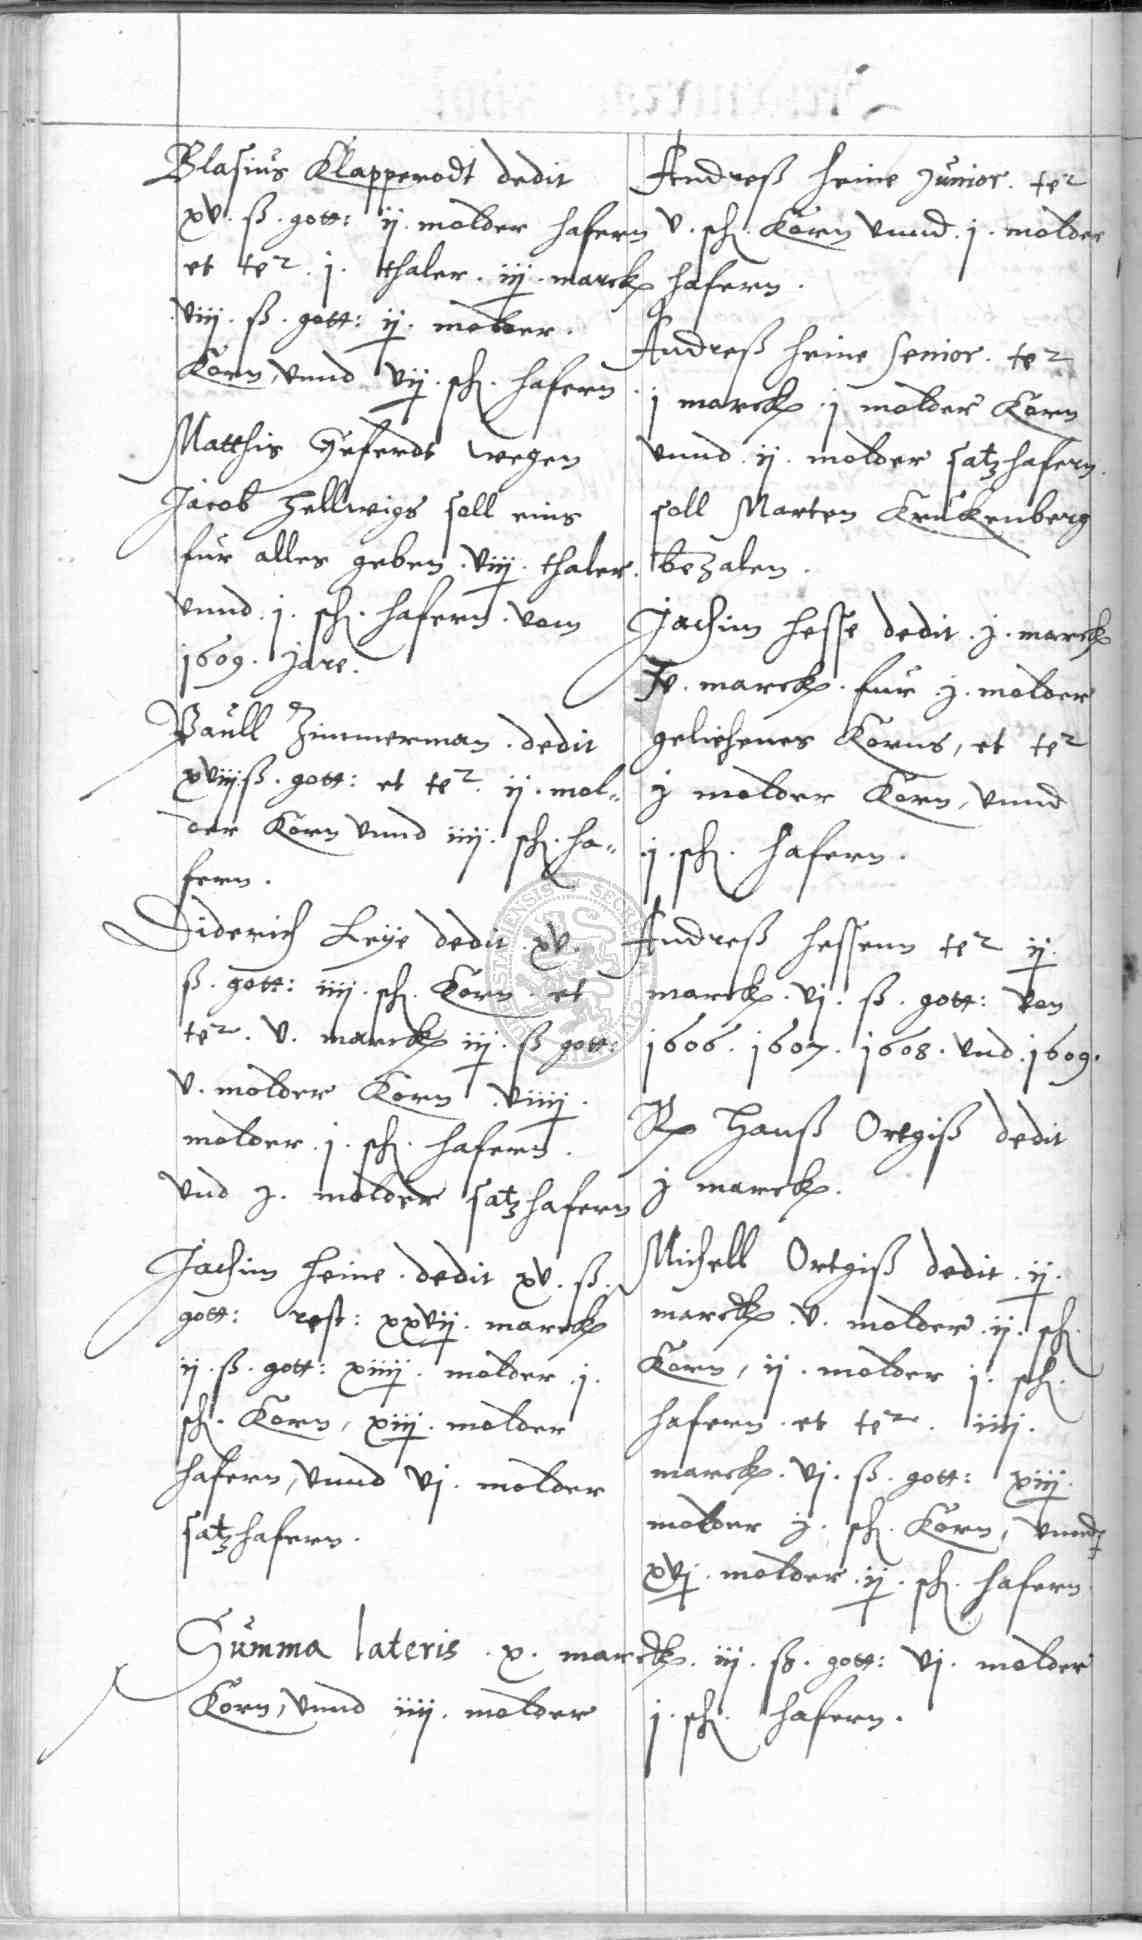 Blasius Klapperodt dedit
xv. ß. gott: ij. molder hafern
et te2. j. thaler. iij. marck
viij. ß. gott: ij. molder.
Korn, vnnd vij. sch. hafern
Matthis Geferdt wegen
Jacob Hellwigs soll eins
fur alles geben. viij. thaler.
vnnd. j. sch. hafern. vom
1609. Jare.
Paull Zimmerman. dedit
xviij ß. gott: et te2. ij. mol-
der Korn vnnd iiij. sch. ha-
fern.
Diderich Leye dedit. xv.
ß. gott: iiij. sch. Korn. et
te2. v. marck iij. ß gott:
v. molder Korn viiij.
molder. j. sch. hafern.
vnd j. molder satzhafern
Jachim Heine. dedit xv. ß.
gott: rest: xxvij. marck
ij. ß. gott: xiiij. molder. j.
sch. Korn, xiij. molder
hafern, vnnd vj. molder
satzhafern.
Andreß Heine Junior. te2
v. sch. Korn vnnd. j. molder
hafern.
Andreß Heine Senior. te2
j marck. j molder Korn
vnnd. ij. molder satzhafern.
soll Marten Kruckenberg
bezalen.
Jachim Hesse dedit. j. marck
marck. fur. j. molder
geliehenes Korns, et te2
j molder Korn, vnnd
j. sch. hafern.
Andreß Hessenn te2 ij.
marck. vj. ß. gott: von
1606. 1607. 1608. vnd. 1609.
Hanß Ortgiß dedit
j marck.
Michell Ortgiß dedit. ij.
marck. v. molder. ij. sch.
Korn, ij. molder j. sch.
hafern. et te2. iiij.
marck. vj. ß. gott: xiij.
molder j. sch. Korn, vnnd
xvj. molder. ij. sch. hafern.
Summa lateris. x. marck. iij. ß. gott: vj. molder
Korn, vnnd iiij. molder j. sch. hafern.